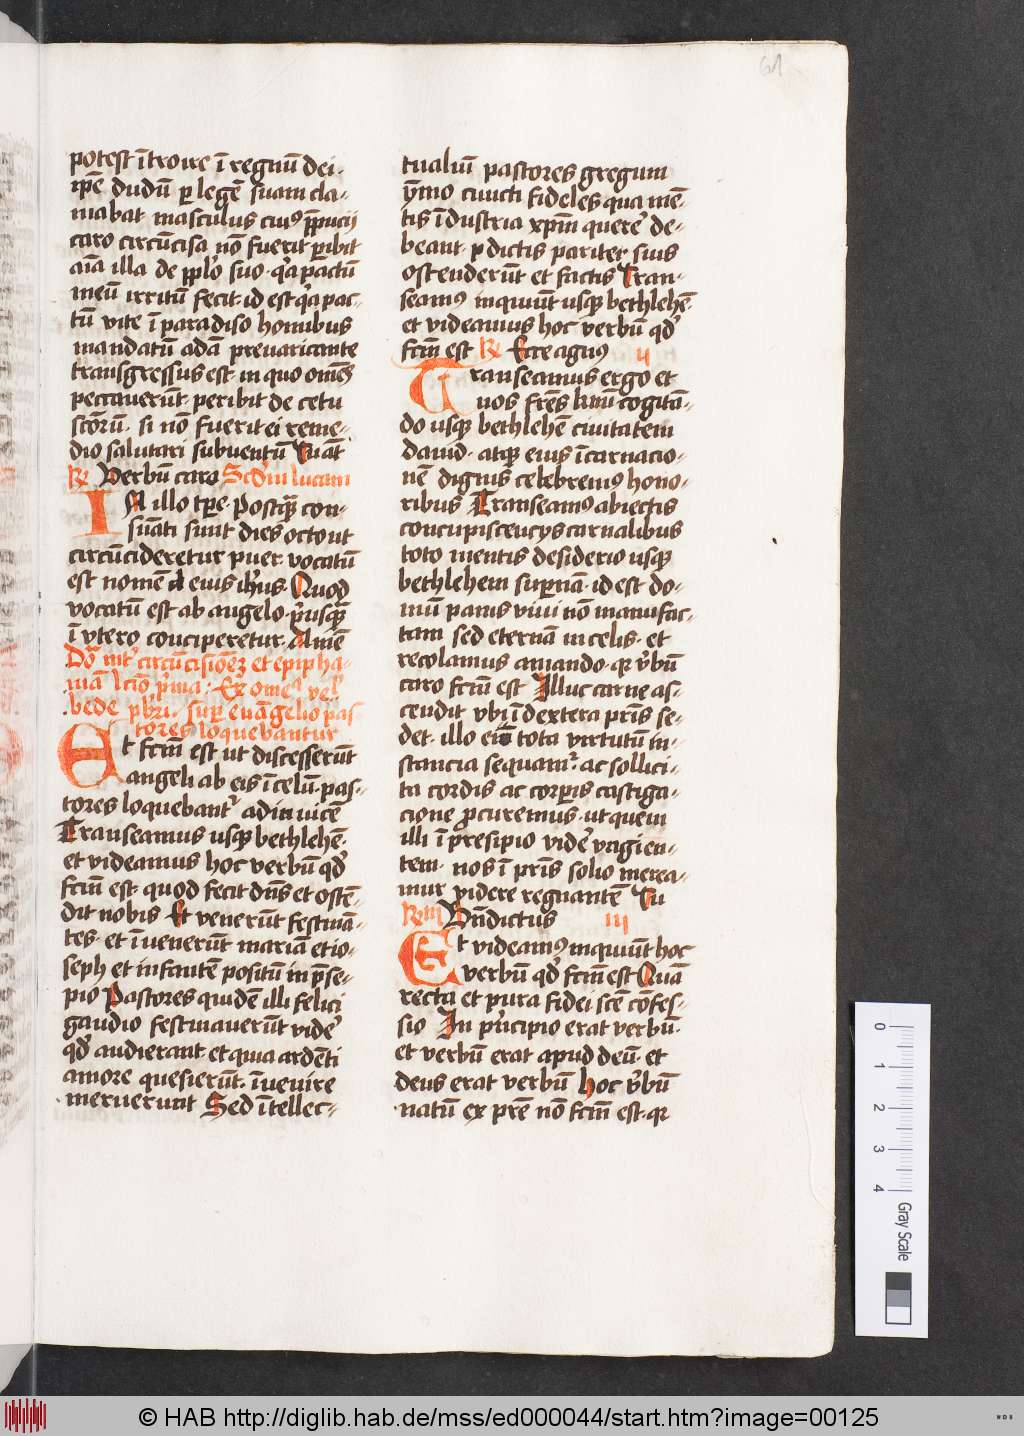 61
potest ītroire ī regnū dei·
ip̄e dudū ꝑ legē suam cla⸗
mabat masculus cuiꝰ p̄pucij
caro circūcisa nō fuerit ꝑibit
aīa illa de pp̄lo suo· qͥa pactū
meū irritū fecit· id est qͥa pac⸗
tū vite ī paradiso homībus
mandatū adā prevaricante
transgressus est· in quo om̄es
peccauerūt· peribit de cetu
sctōrū· si nō fuerit ei reme⸗
dio salutari subuentū Tu āt
Rͫ Verbū caro Scd̄m lucam
IN illo tp̄e· Postqͣ con⸗
sūati sunt dies octo ut
circūcideretur puer· vocatū
est nomē eius ih̄us· Quod
vocatū est ab angelo· pͥusqͣ
ī vtero conciperetur· Al mē
Dō int͛ circūcisionē et epipha⸗
niā lcīo pͥma· Ex omeͣ ve͛
bede pb̄ri· suꝑ evāgelio pas
tores loquebantur
Et fcm̄ est ut discesserūt
angeli ab eis ī celū· pas⸗
tores loquebantͬ ad inuicē
Transeamus usqꝫ bethlehē·
et videamus hoc verbū qđ
fcm̄ est· quod fecit dn̄s et ostē⸗
dit nobis Et venerūt festinā⸗
tes· et īuenerūt mariā et io⸗
seph et infantē positū in p̄se⸗
pio Pastores quidē illi felici
gaudio festinauerūt vidēͬ
qđ audierant· et quia ardēti
amore quesierūt· īuenire
meruerunt Sed ītellec⸗
tualiū pastores gregum
ȳmo cuncti fideles qua mē⸗
tis īdustria xp̄m querēͬ de⸗
beant· p̄dictis pariter suis
ostenderūt et factis Tran⸗
seamꝰ inquiūt usqꝫ bethlehē·
et videamus hoc verbū qđ
fcm̄ est Rͫ Ecce agnꝰ ij
Transeamus ergo et
nos frēs kmī cogitā⸗
do usqꝫ bethlehē ciuitatem
dauid· atqꝫ eius īcarnacio⸗
nē dignis celebremꝰ hono⸗
ribus Transeamꝰ abiectis
concupiscencys carnalibus
toto mentis desiderio usqꝫ
bethlehem suꝑnā· id est do⸗
mū panis viui nō manufac⸗
tam sed eternā in celis· et
recolamus amando· qꝛ v̄bū
caro fcm̄ est Illuc carne as⸗
cendit vbi ī dextera pr̄is se⸗
det· illo eū tota virtutū in⸗
stancia sequamͬ ac sollici⸗
ta cordis ac corꝑis castiga⸗
cione ꝓcuremus· ut quem
illi ī presipio vidēͬ vagien⸗
tem· nos ī pr̄is solio merea⸗
mur videre regnantē Tu
Rͫ Bn̄dictus iij
Et videamꝰ inquiūt hoc
verbū qđ fcm̄ est Quā
recta et pura fidei scē cōfes⸗
sio In pͥncipio erat verbū·
et verbū erat apud deū· et
deus erat verbū hoc v̄bū
natū ex prē nō fcm̄ est· qꝛ
0 1 2 3 4 Gray Scale
© HAB http://diglib.hab.de/mss/ed000044/start.htm?image=00125